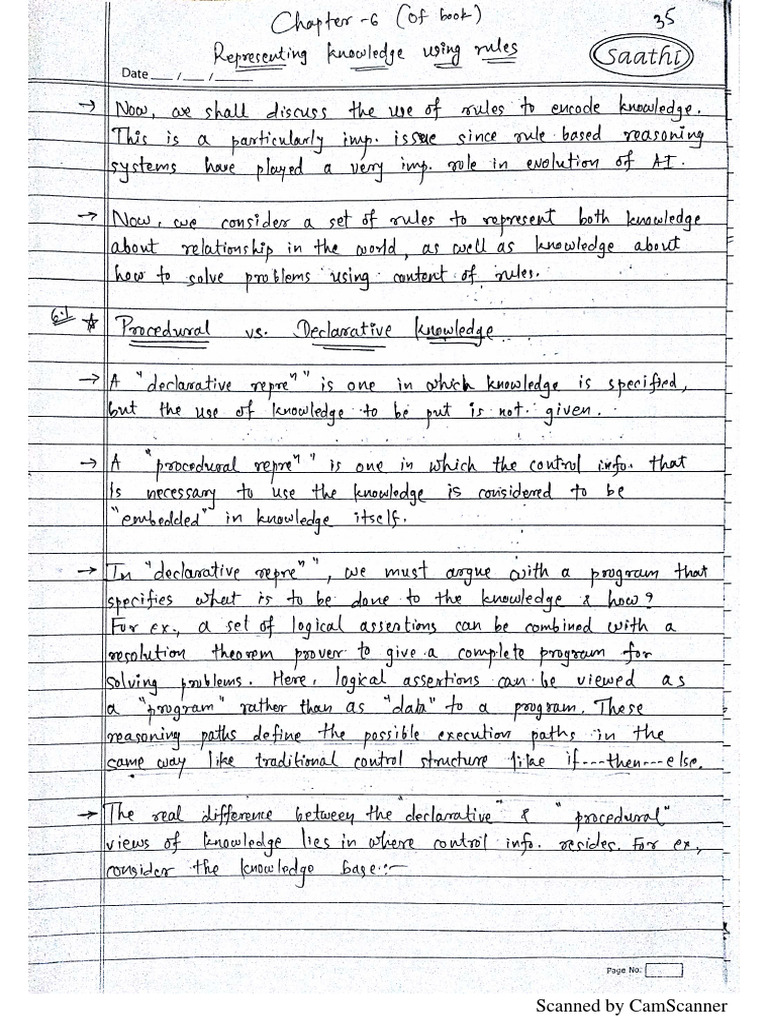 Chapter-6 (Of book)
35
Representing knowledge using rules
Saathi
Date ___/___/___
→ Now, we shall discuss the use of rules to encode knowledge.
This is a particularly imp. issue since rule based reasoning
systems have played a very imp. role in evolution of AI.
→ Now, we consider a set of rules to represent both knowledge
about relationship in the world, as well as knowledge about
how to solve problems using content of rules.
6.1 ☆ Procedural vs. Declarative knowledge
→ A "declarative repreⁿ" is one in which knowledge is specified,
but the use of knowledge to be put is not given.
→ A "procedural repreⁿ" is one in which the control info. that
is necessary to use the knowledge is considered to be
"embedded" in knowledge itself.
→ In "declarative repreⁿ", we must argue with a program that
specifies what is to be done to the knowledge & how?
For ex., a set of logical assertions can be combined with a
resolution theorem prover to give a complete program for
solving problems. Here, logical assertions can be viewed as
a "program" rather than as "data" to a program. These
reasoning paths define the possible execution paths in the
same way like traditional control structure like if---then---else.
→ The real difference between the "declarative" & "procedural"
views of knowledge lies in where control info. resides. For ex,
consider the knowledge base:-
Page No:
Scanned by CamScanner